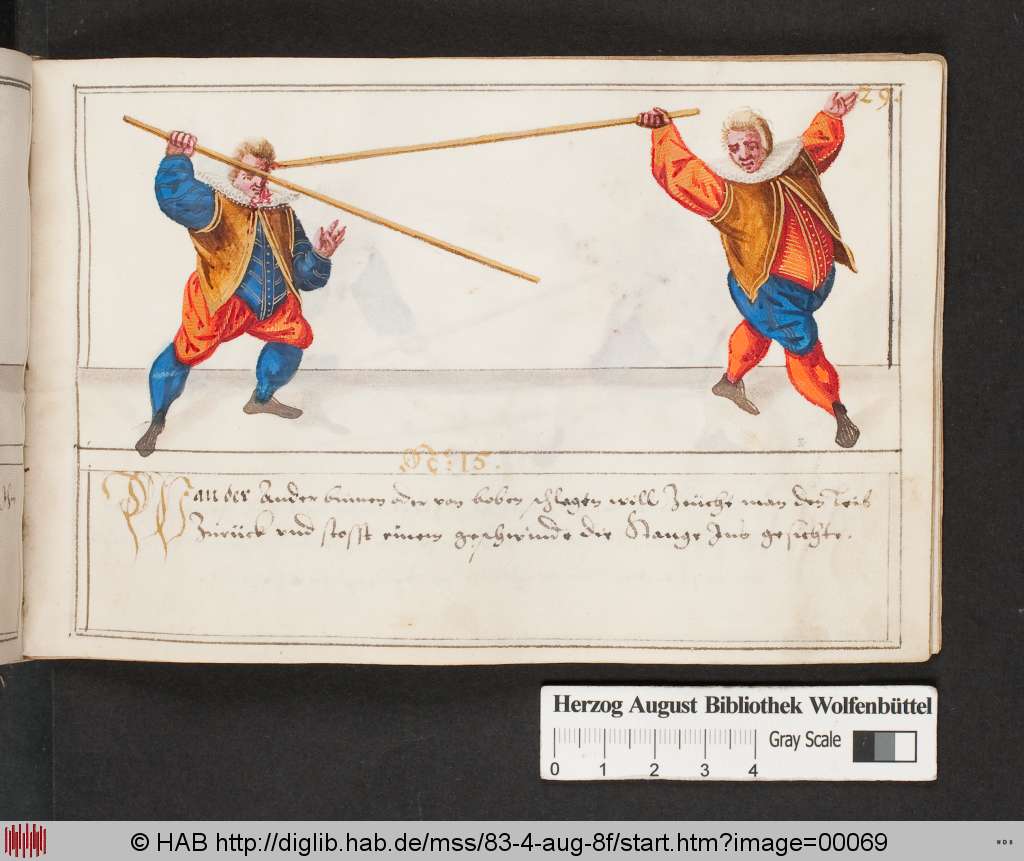 29.
No: 15.
Wan der Ander binnen oder von boben schlagen will Zeüche man den leib
Zurück vnd stosst einem geschwinde die Stange Ins gesichte.
Herzog August Bibliothek Wolfenbüttel
Gray Scale
0 1 2 3 4
© HAB http://diglib.hab.de/mss/83-4-aug-8f/start.htm?image=00069